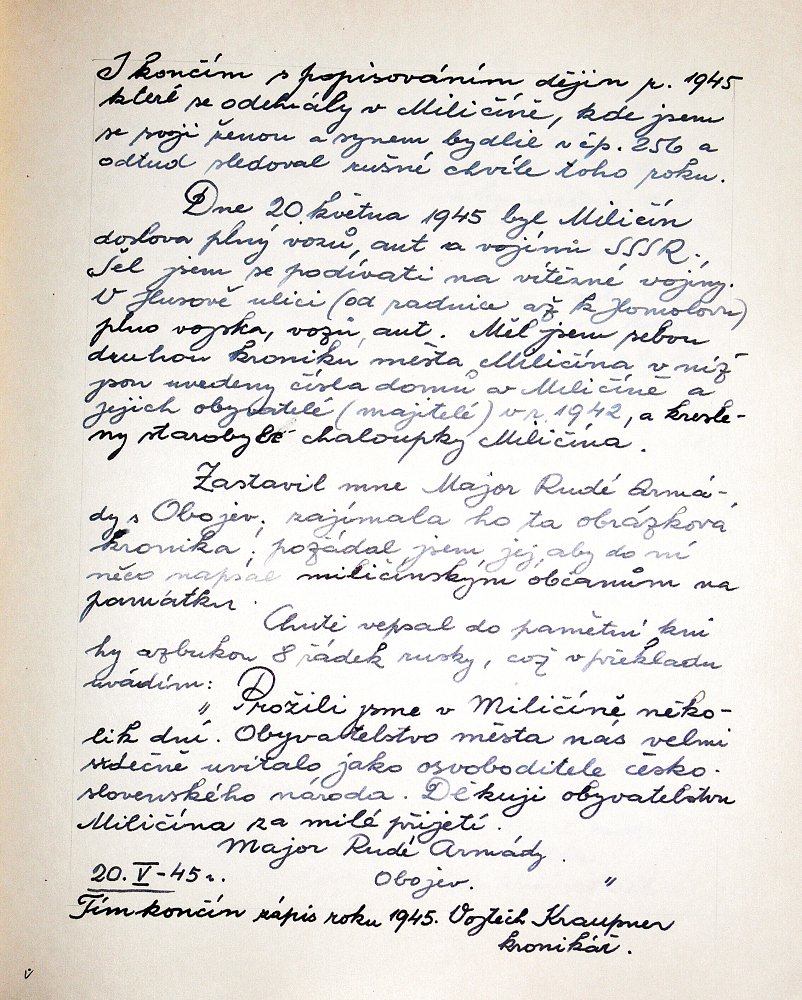 I končím s popisováním dějin r. 1945
které se odehrály v Miličíně, kde jsem
se svojí ženou a synem bydlil v čp. 256 a
odtud sledoval rušné chvíle toho roku.
Dne 20. května 1945 byl Miličín
doslova plný vozů, aut a vojínů SSSR.
Šel jsem se podívati na vítězné vojíny.
V Husově ulici (od radnice až k Homolovu)
plno vojska, vozů, aut. Měl jsem sebou
druhou kroniku města Miličína, v níž
jsou uvedeny čísla domů v Miličíně a
jejich obyvatelé (majitelé) v r. 1942, a kresle-
ny starobylé chaloupky Miličína.
Zastavil mne Major Rudé Armá-
dy s Obojev; zajímala ho ta obrázková
kronika; požádal jsem jej, aby do ní
něco napsal miličínským občanům na
památku.
Chutě vepsal do pamětní kni
hy azbukou 8 řádek rusky, což v překladu
uvádím:
" Prožili jsme v Miličíně něko-
lik dní. Obyvatelstvo města nás velmi
srdečně uvítalo jako osvoboditele česko-
slovenského národa. Děkuji obyvatelstvu
Miličína za milé přijetí.
Major Rudé Armády.
20. V - 45 r. Obojev. "
Tím končím zápis roku 1945. Vojtěch Kraupner
kronikář.